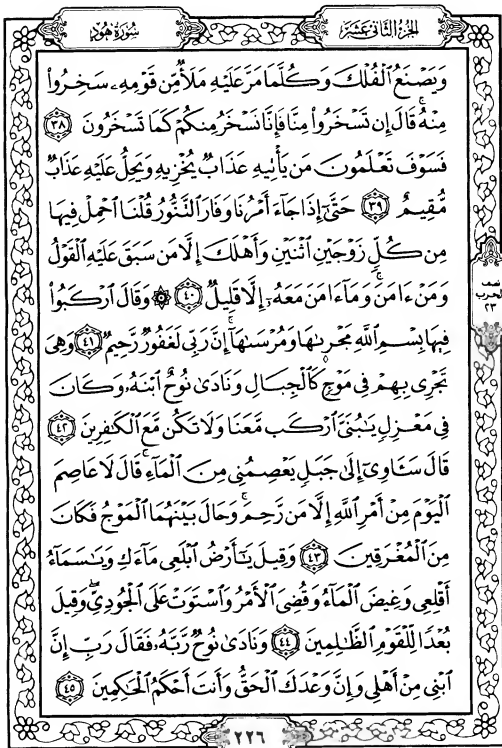 الجزء الثاني عشر
سورة هود
وَيَصْنَعُ ٱلْفُلْكَ وَكُلَّمَا مَرَّ عَلَيْهِ مَلَأٌ مِّن قَوْمِهِۦ سَخِرُوا۟
مِنْهُ ۚ قَالَ إِن تَسْخَرُوا۟ مِنَّا فَإِنَّا نَسْخَرُ مِنكُمْ كَمَا تَسْخَرُونَ ٣٨
فَسَوْفَ تَعْلَمُونَ مَن يَأْتِيهِ عَذَابٌ يُخْزِيهِ وَيَحِلُّ عَلَيْهِ عَذَابٌ
مُّقِيمٌ ٣٩ حَتَّىٰٓ إِذَا جَآءَ أَمْرُنَا وَفَارَ ٱلتَّنُّورُ قُلْنَا ٱحْمِلْ فِيهَا
مِن كُلٍّ زَوْجَيْنِ ٱثْنَيْنِ وَأَهْلَكَ إِلَّا مَن سَبَقَ عَلَيْهِ ٱلْقَوْلُ
وَمَنْ ءَامَنَ ۚ وَمَآ ءَامَنَ مَعَهُۥٓ إِلَّا قَلِيلٌ ٤٠ ۞ وَقَالَ ٱرْكَبُوا۟
فِيهَا بِسْمِ ٱللَّهِ مَجْر۪ىٰهَا وَمُرْسَىٰهَآ ۚ إِنَّ رَبِّى لَغَفُورٌ رَّحِيمٌ ٤١ وَهِىَ
تَجْرِى بِهِمْ فِى مَوْجٍ كَٱلْجِبَالِ وَنَادَىٰ نُوحٌ ٱبْنَهُۥ وَكَانَ
فِى مَعْزِلٍ يَٰبُنَىَّ ٱرْكَب مَّعَنَا وَلَا تَكُن مَّعَ ٱلْكَٰفِرِينَ ٤٢
قَالَ سَـَٔاوِىٓ إِلَىٰ جَبَلٍ يَعْصِمُنِى مِنَ ٱلْمَآءِ ۚ قَالَ لَا عَاصِمَ
ٱلْيَوْمَ مِنْ أَمْرِ ٱللَّهِ إِلَّا مَن رَّحِمَ ۚ وَحَالَ بَيْنَهُمَا ٱلْمَوْجُ فَكَانَ
مِنَ ٱلْمُغْرَقِينَ ٤٣ وَقِيلَ يَٰٓأَرْضُ ٱبْلَعِى مَآءَكِ وَيَٰسَمَآءُ
أَقْلِعِى وَغِيضَ ٱلْمَآءُ وَقُضِىَ ٱلْأَمْرُ وَٱسْتَوَتْ عَلَى ٱلْجُودِىِّ ۖ وَقِيلَ
بُعْدًا لِّلْقَوْمِ ٱلظَّٰلِمِينَ ٤٤ وَنَادَىٰ نُوحٌ رَّبَّهُۥ فَقَالَ رَبِّ إِنَّ
ٱبْنِى مِنْ أَهْلِى وَإِنَّ وَعْدَكَ ٱلْحَقُّ وَأَنتَ أَحْكَمُ ٱلْحَٰكِمِينَ ٤٥
نصف
الحزب
٢٣
٢٢٦